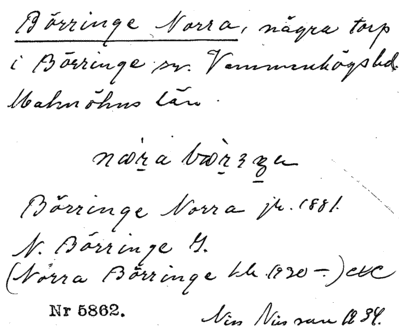 Börringe Norra, några torp
i Börringe sn. Vemmenhögs hd.
Malmöhus län.
Börringe Norra jk. 1881.
N. Börringe G.
(Norra Börringe 1920 –.)
Nr 5862.
Nils Nilsson 1934.